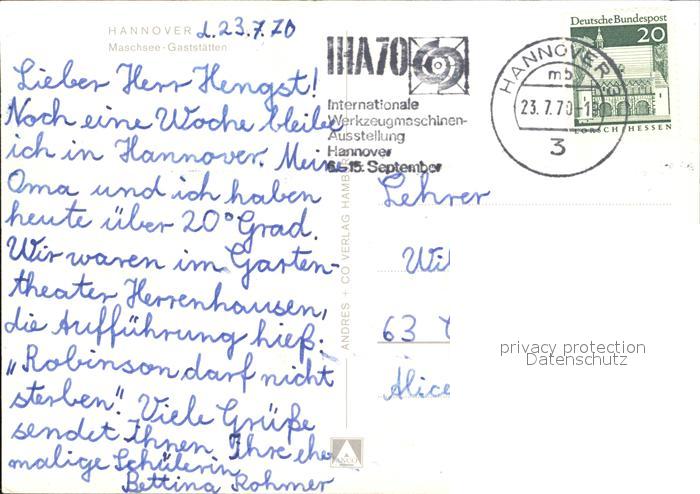 HANNOVER d. 23.7.70
Maschsee-Gaststätten
Lieber Herr Hengst!
Noch eine Woche bleibe
ich in Hannover. Meine
Oma und ich haben
heute über 20° Grad.
Wir waren im Garten-
theater Herrenhausen,
die Aufführung hieß:
„Robinson darf nicht
sterben". Viele Grüße
sendet Ihnen Ihre ehe
malige Schülerin
Bettina Rohmer
ANDRES + CO VERLAG HAMBURG
IHA70
Internationale
Werkzeugmaschinen-
Ausstellung
Hannover
6.-15. September
HANNOVER
mb
23.7.70
3
Deutsche Bundespost
20
LORSCH/HESSEN
Lehrer
Wil
63
Alice
privacy protection
Datenschutz